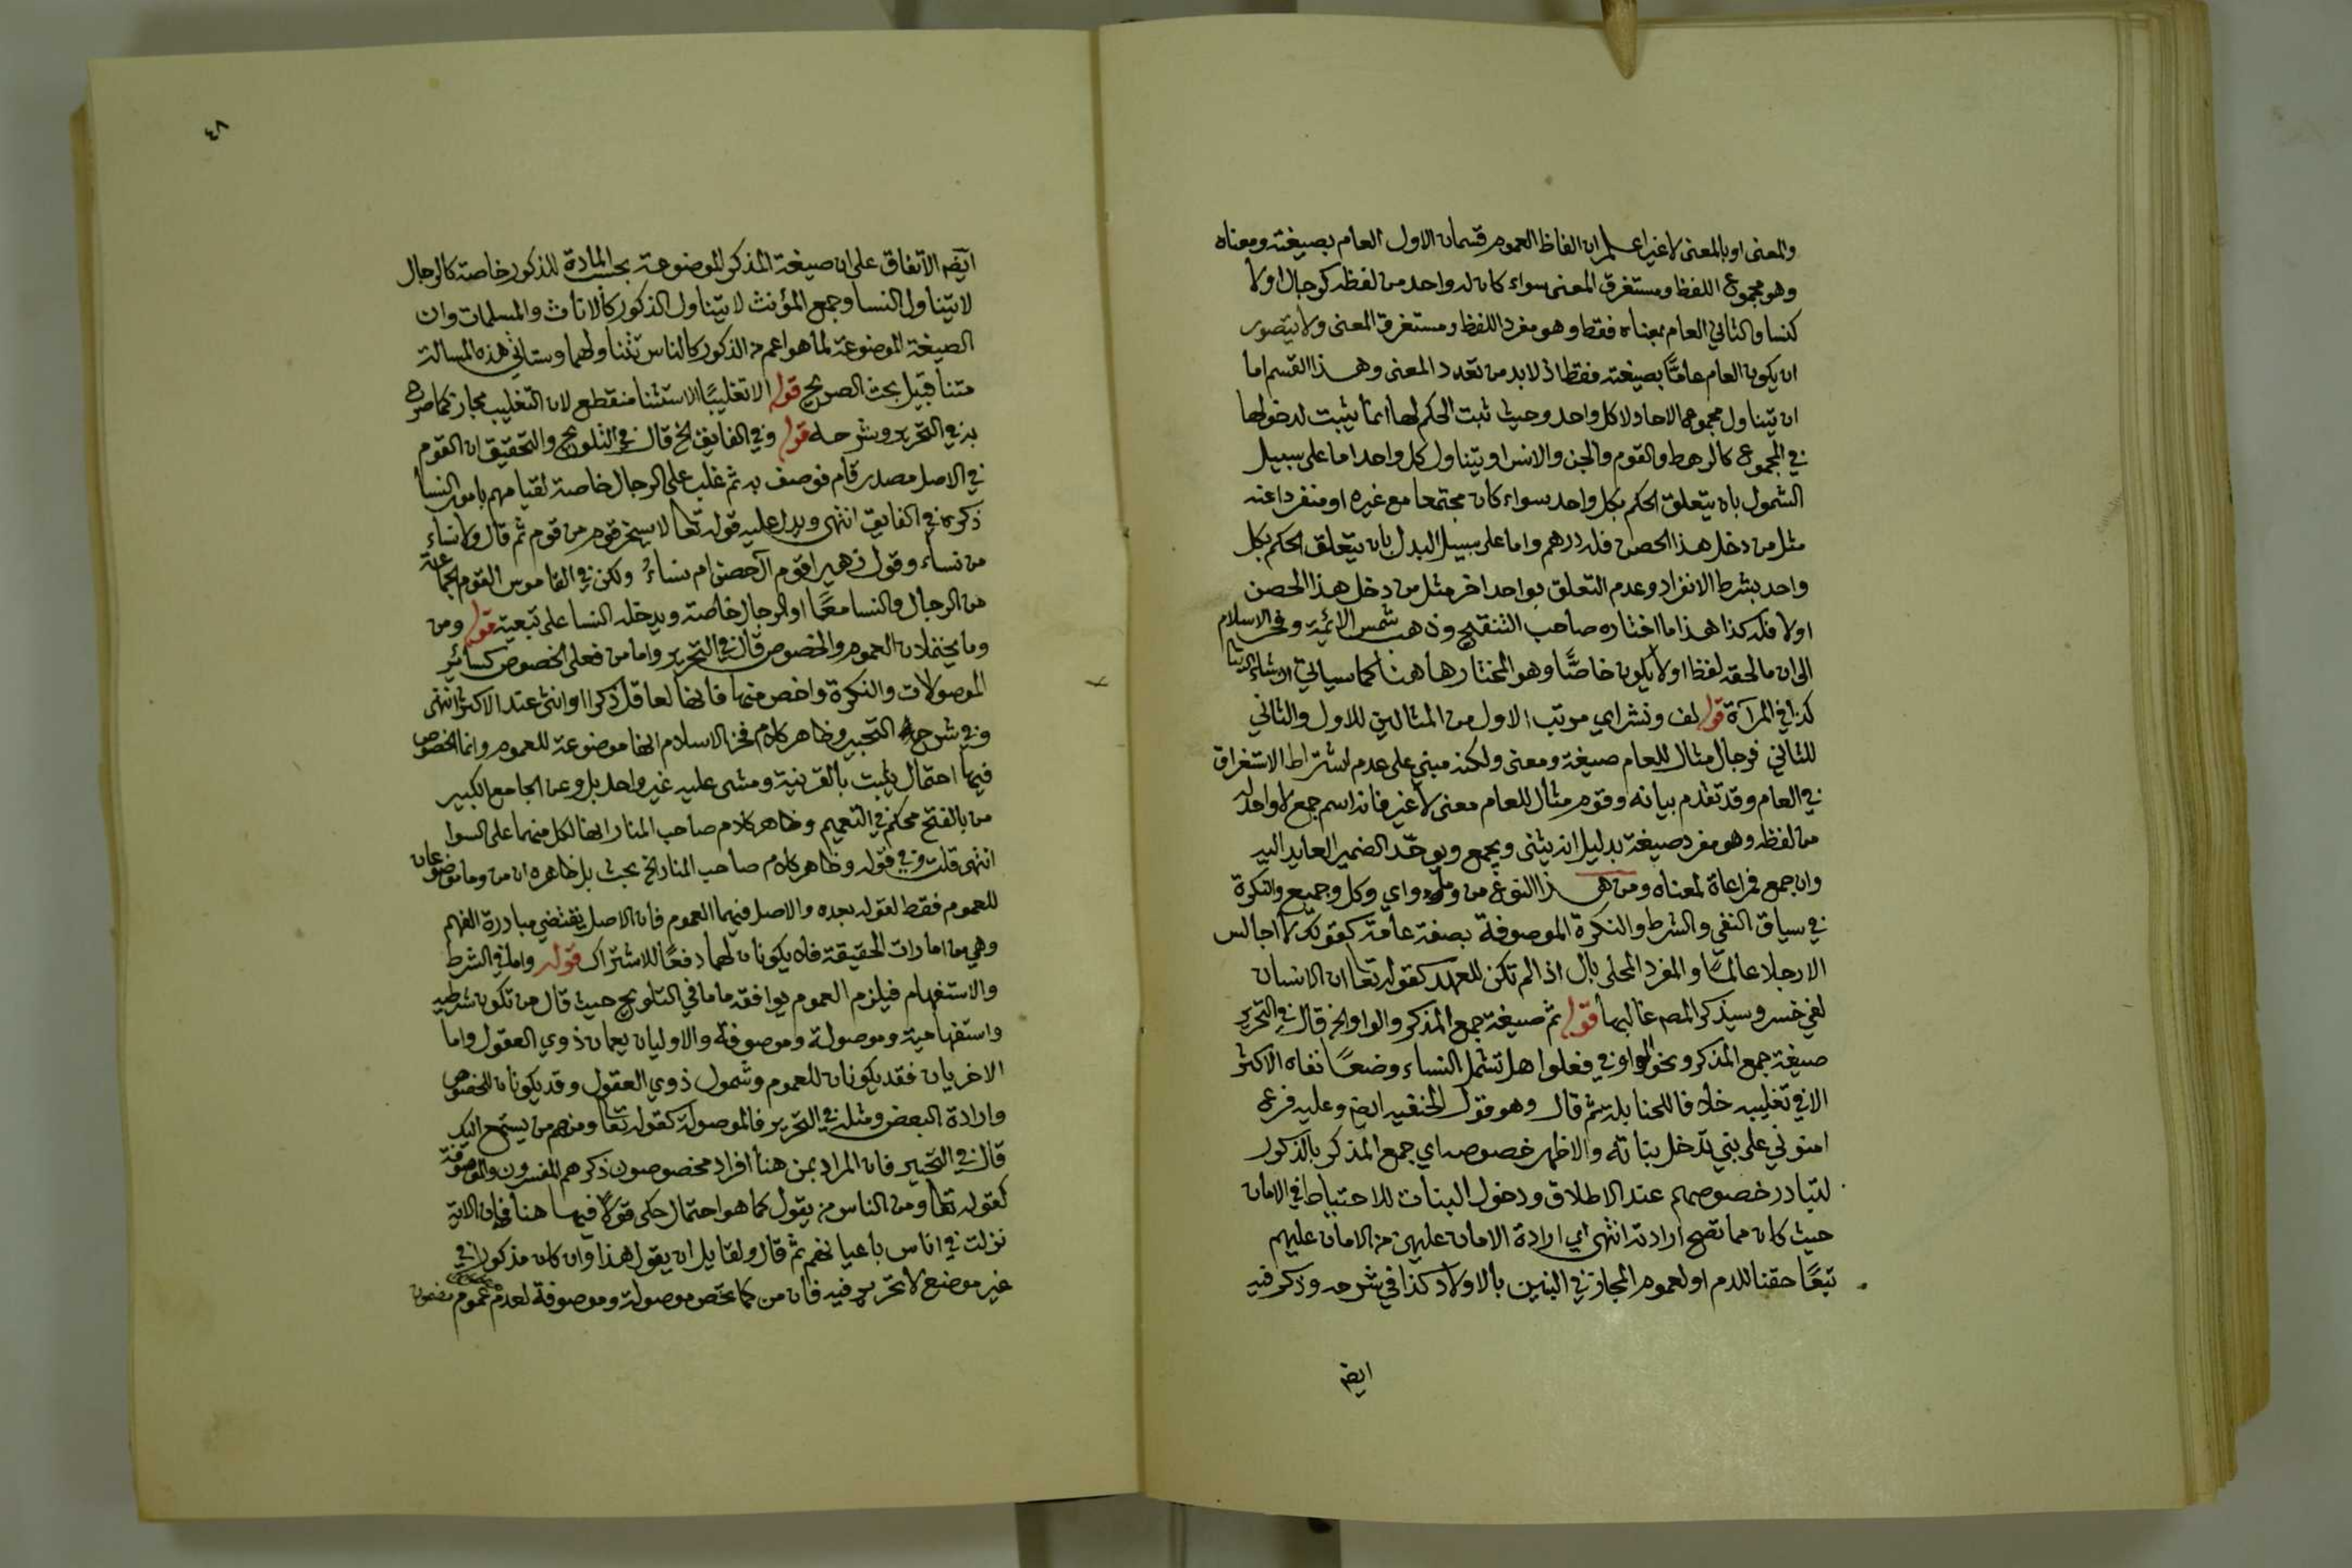 والمعنى او بالمعنى لا غير اعلم ان الفاظ العموم قسمان الاول العام بصيغته ومعناه
وهو مجموع اللفظ ومستغرق المعنى سواء كان له واحد من لفظه كرجال اولا
كنسا والثاني العام بمعناه فقط وهو مفرد اللفظ ومستغرق المعنى ولا يتصور
ان يكون العام عامًّا بصيغته فقط اذ لا بد من تعدد المعنى وهذا القسم اما
ان يتناول مجموع الاحاد لا كل واحد وحيث ثبت الحكم لها انما يثبت لدخولها
في المجموع كالرهط والقوم والجن والانس او يتناول كل واحد اما على سبيل
الشمول بان يتعلق الحكم بكل واحد سواء كان مجتمعا مع غيره او منفردا عنه
مثل من دخل هذا الحصن فله درهم واما على سبيل البدل بان يتعلق الحكم بكل
واحد بشرط الانفراد وعدم التعلق بواحد اخر مثل من دخل هذا الحصن
اولا فله كذا هذا ما اختاره صاحب التنقيح وذهب شمس الائمة وفخر الاسلام
الى ان ما لحقه لفظ اولا يكون خاصًّا وهو المختار هاهنا كما سياتي ان شاء الله تعالى
كذا في المرآة قوله لف ونشر اي مرتب الاول من المثالين للاول والثاني
للثاني فرجال مثال للعام صيغة ومعنى ولكنه مبني على عدم اشتراط الاستغراق
في العام وقد تقدم بيانه وقوم مثال للعام معنى لا غير فانه اسم جمع لا واحد له
من لفظه وهو مفرد صيغة بدليل انه يثنى ويجمع ويوحّد الضمير العايد اليه
وان جمع فمراعاة لمعناه ومن هذا النوع من وما واي وكل وجميع والنكرة
في سياق النفي والشرط والنكرة الموصوفة بصفة عامة كقولك لا اجالس
الا رجلا عالمًا والمفرد المحلى بال اذا لم تكن للعهد كقوله تعا ان الانسان
لفي خسر وسيذكر المصـ غالبها قوله ثم صيغة جمع المذكر والواو الخ قال في التحرير
صيغة جمع المذكر ونحو الواو في فعلوا هل تشمل النساء وضعًا نفاه الاكثر
الا في تغليبه خلافا للحنابلة ثم قال وهو قول الحنفيه ايضـ وعليه فرع
امنوني على بني تدخل بناته والاظهر خصوصه اي جمع المذكر بالذكور
لتبادر خصوصهم عند الاطلاق ودخول البنات للاحتياط في الامان
حيث كان مما تصح ارادته انتهى اي ارادة الامان عليهن من الامان عليهم
تبعًا حقنا للدم او لعموم المجاز في البنين بالاولاد كذا في شرحه وذكر فيه
ايضـ
٤٨
ايضـ الاتفاق على ان صيغة المذكر الموضوعة بحسب المادة للذكور خاصة كالرجال
لا يتناول النسا وجمع المؤنث لا يتناول الذكور كالاناث والمسلمات وان
الصيغة الموضوعة لما هو اعم من الذكور كالناس تتناولهما وستاتي هذه المسالة
متنا قبيل بحث الصريح قوله الا تغليبًا الاستثنا منقطع لان التغليب مجاز كما صرح
به في التحرير وشرحه قوله وفي الفايق الخ قال في التلويح والتحقيق ان القوم
في الاصل مصدر قام فوصف به ثم غلب على الرجال خاصة لقيامهم بامور النسا
ذكره في الفايق انتهى ويدل عليه قوله تعا لا يسخر قوم من قوم ثم قال ولا نساء
من نساء وقول زهير اقوم آل حصن ام نساءُ ولكن في القاموس القوم الجماعة
من الرجال والنسا معًا او الرجال خاصة ويدخله النسا على تبعية قوله ومن
وما يحتملان العموم والخصوص قال في التحرير واما من فعلى الخصوص كسائر
الموصولات والنكرة واخص منها فانها لعاقل ذكرا او انثى عند الاكثر انتهى
وفي شرحه التحبير وظاهر كلام فخر الاسلام انها موضوعة للعموم وانما الخصوص
فيها احتمال يثبت بالقرينة ومشى عليه غير واحد بل وعن الجامع الكبير
من بالفتح محكم في التعميم وظاهر كلام صاحب المنار انها لكل منهما على السوا
انتهى قلت وفي قوله وظاهر كلام صاحب المنار الخ بحث بل ظاهره ان من وما موضوعان
للعموم فقط لقوله بعده والاصل فيهما العموم فان الاصل يقتضي مبادرة الفهم
وهي من امارات الحقيقة فلا يكونان لهما دفعًا للاشتراك قوله واما في الشرط
والاستفهام فيلزم العموم يوافقه ما في التلويح حيث قال من تكون شرطيه
واستفهامية وموصولة وموصوفة والاوليان يعمان ذوي العقول واما
الاخريان فقد يكونان للعموم وشمول ذوي العقول وقد يكونان للخصوص
وارادة البعض ومثله في التحرير فالموصولة كقوله تعا ومنهم من يستمع اليك
قال في التحبير فان المراد بمن هنا افراد مخصوصون ذكرهم المفسرون والموصوفة
كقوله تعا ومن الناس من يقول كما هو احتمال حكي قولًا فيها هنا فان الاية
نزلت في اناس باعيانهم ثم قال ولقايل ان يقول هذا وان كان مذكورا في
غير موضع لا تحرير فيه فان من كما تخص موصولة وموصوفة لعدم عموم مضمون